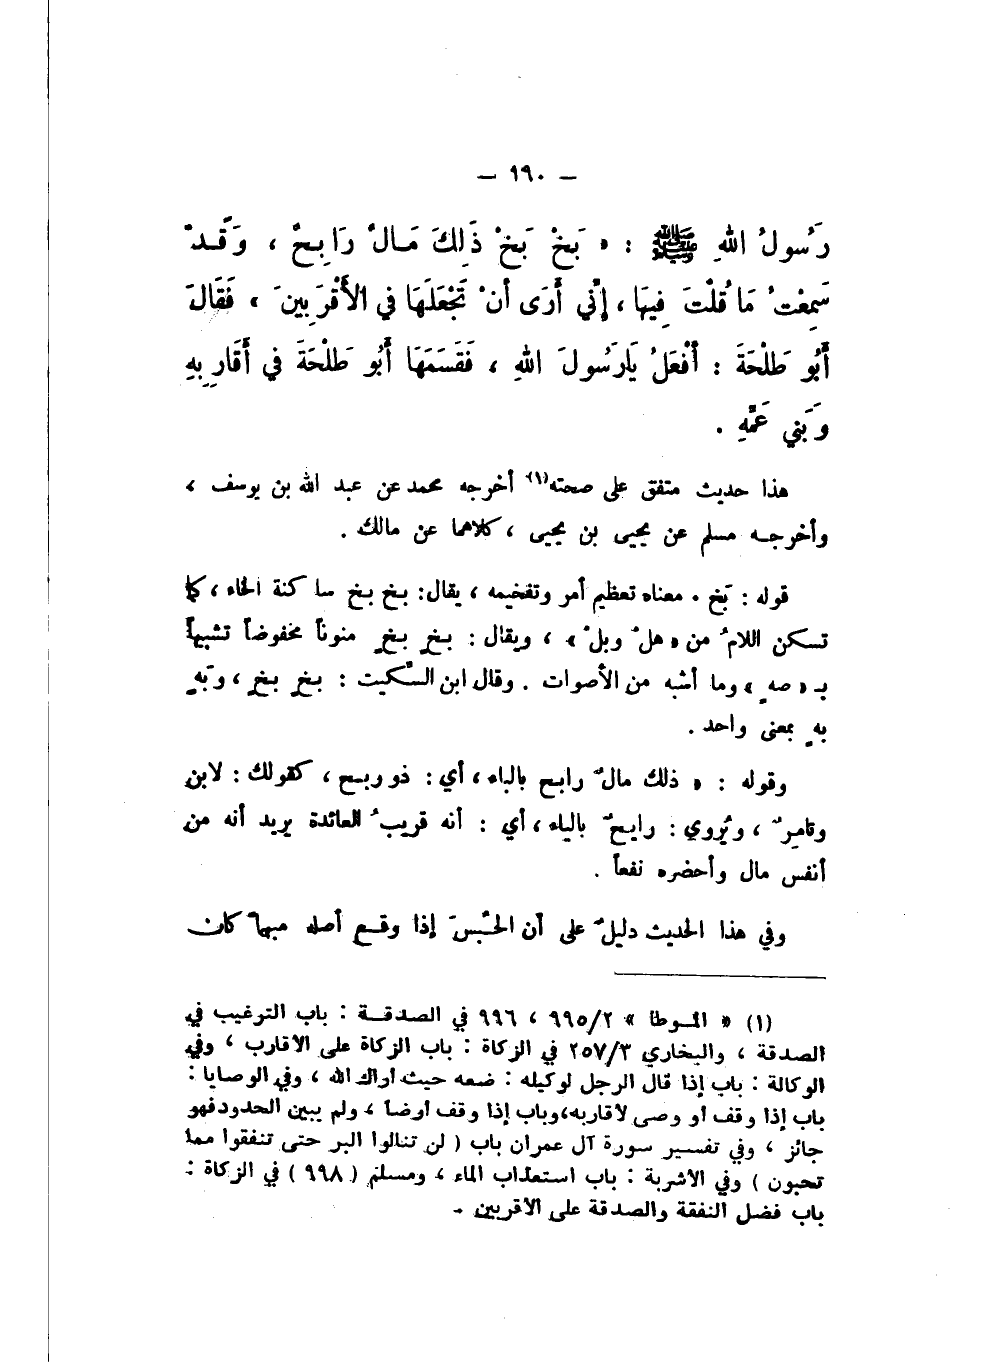 – ١٩٠ –
رَسُولُ اللهِ ﷺ : « بَخْ بَخْ ذَلِكَ مَالٌ رَابِحٌ ، وَقَدْ
سَمِعْتُ مَا قُلْتَ فِيهَا ، إِنِّي أَرَى أَنْ تَجْعَلَهَا فِي الأَقْرَبِينَ » فَقَالَ
أَبُو طَلْحَةَ : أَفْعَلُ يَارَسُولَ اللهِ ، فَقَسَمَهَا أَبُو طَلْحَةَ فِي أَقَارِبِهِ
وَبَنِي عَمِّهِ .
هذا حديث متفق على صحته(١) أخرجه محمد عن عبد الله بن يوسف ،
وأخرجه مسلم عن يحيى بن يحيى ، كلاهما عن مالك .
قوله : بَخْ . معناه تعظيم أمر وتفخيمه ، يقال: بخ بخ ساكنة الخاء ، كما
تسكن اللامُ من « هلْ وبلْ » ، ويقال : بخٍ بخٍ منوناً مخفوضاً تشبيهاً
بـ « صهٍ » وما أشبه من الأصوات . وقال ابن السِّكيت : بخٍ بخٍ ، وبَهٍ
بهٍ بمعنى واحد .
وقوله : « ذلك مالٌ رابح بالباء ، أي : ذو ربح ، كقولك : لابن
وتامِرٌ ، ويُروي : رايحٌ بالياء ، أي : أنه قريبُ العائدة يريد أنه من
أنفس مال وأحضره نفعاً .
وفي هذا الحديث دليلٌ على أن الحَبْسَ إذا وقع أصله مبهماً كان
(١) « الموطا » ٩٩٥/٢ ، ٩٩٦ في الصدقة : باب الترغيب في
الصدقة ، والبخاري ٢٥٧/٣ في الزكاة : باب الزكاة على الاقارب ، وفي
الوكالة : باب إذا قال الرجل لوكيله : ضعه حيث أراك الله ، وفي الوصايا :
باب إذا وقف او وصى لاقاربه،وباب إذا وقف أرضا ، ولم يبين الحدود فهو
جائز ، وفي تفسير سورة آل عمران باب ( لن تنالوا البر حتى تنفقوا مما
تحبون ) وفي الاشربة : باب استعذاب الماء ، ومسلم ( ٩٩٨ ) في الزكاة :
باب فضل النفقة والصدقة على الاقربين .